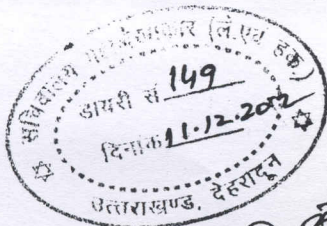 सचिवालय महालेखाकार (ले.एवं हक.)
डायरी सं 149
दिनांक 11.12.2002
उत्तराखण्ड, देहरादून